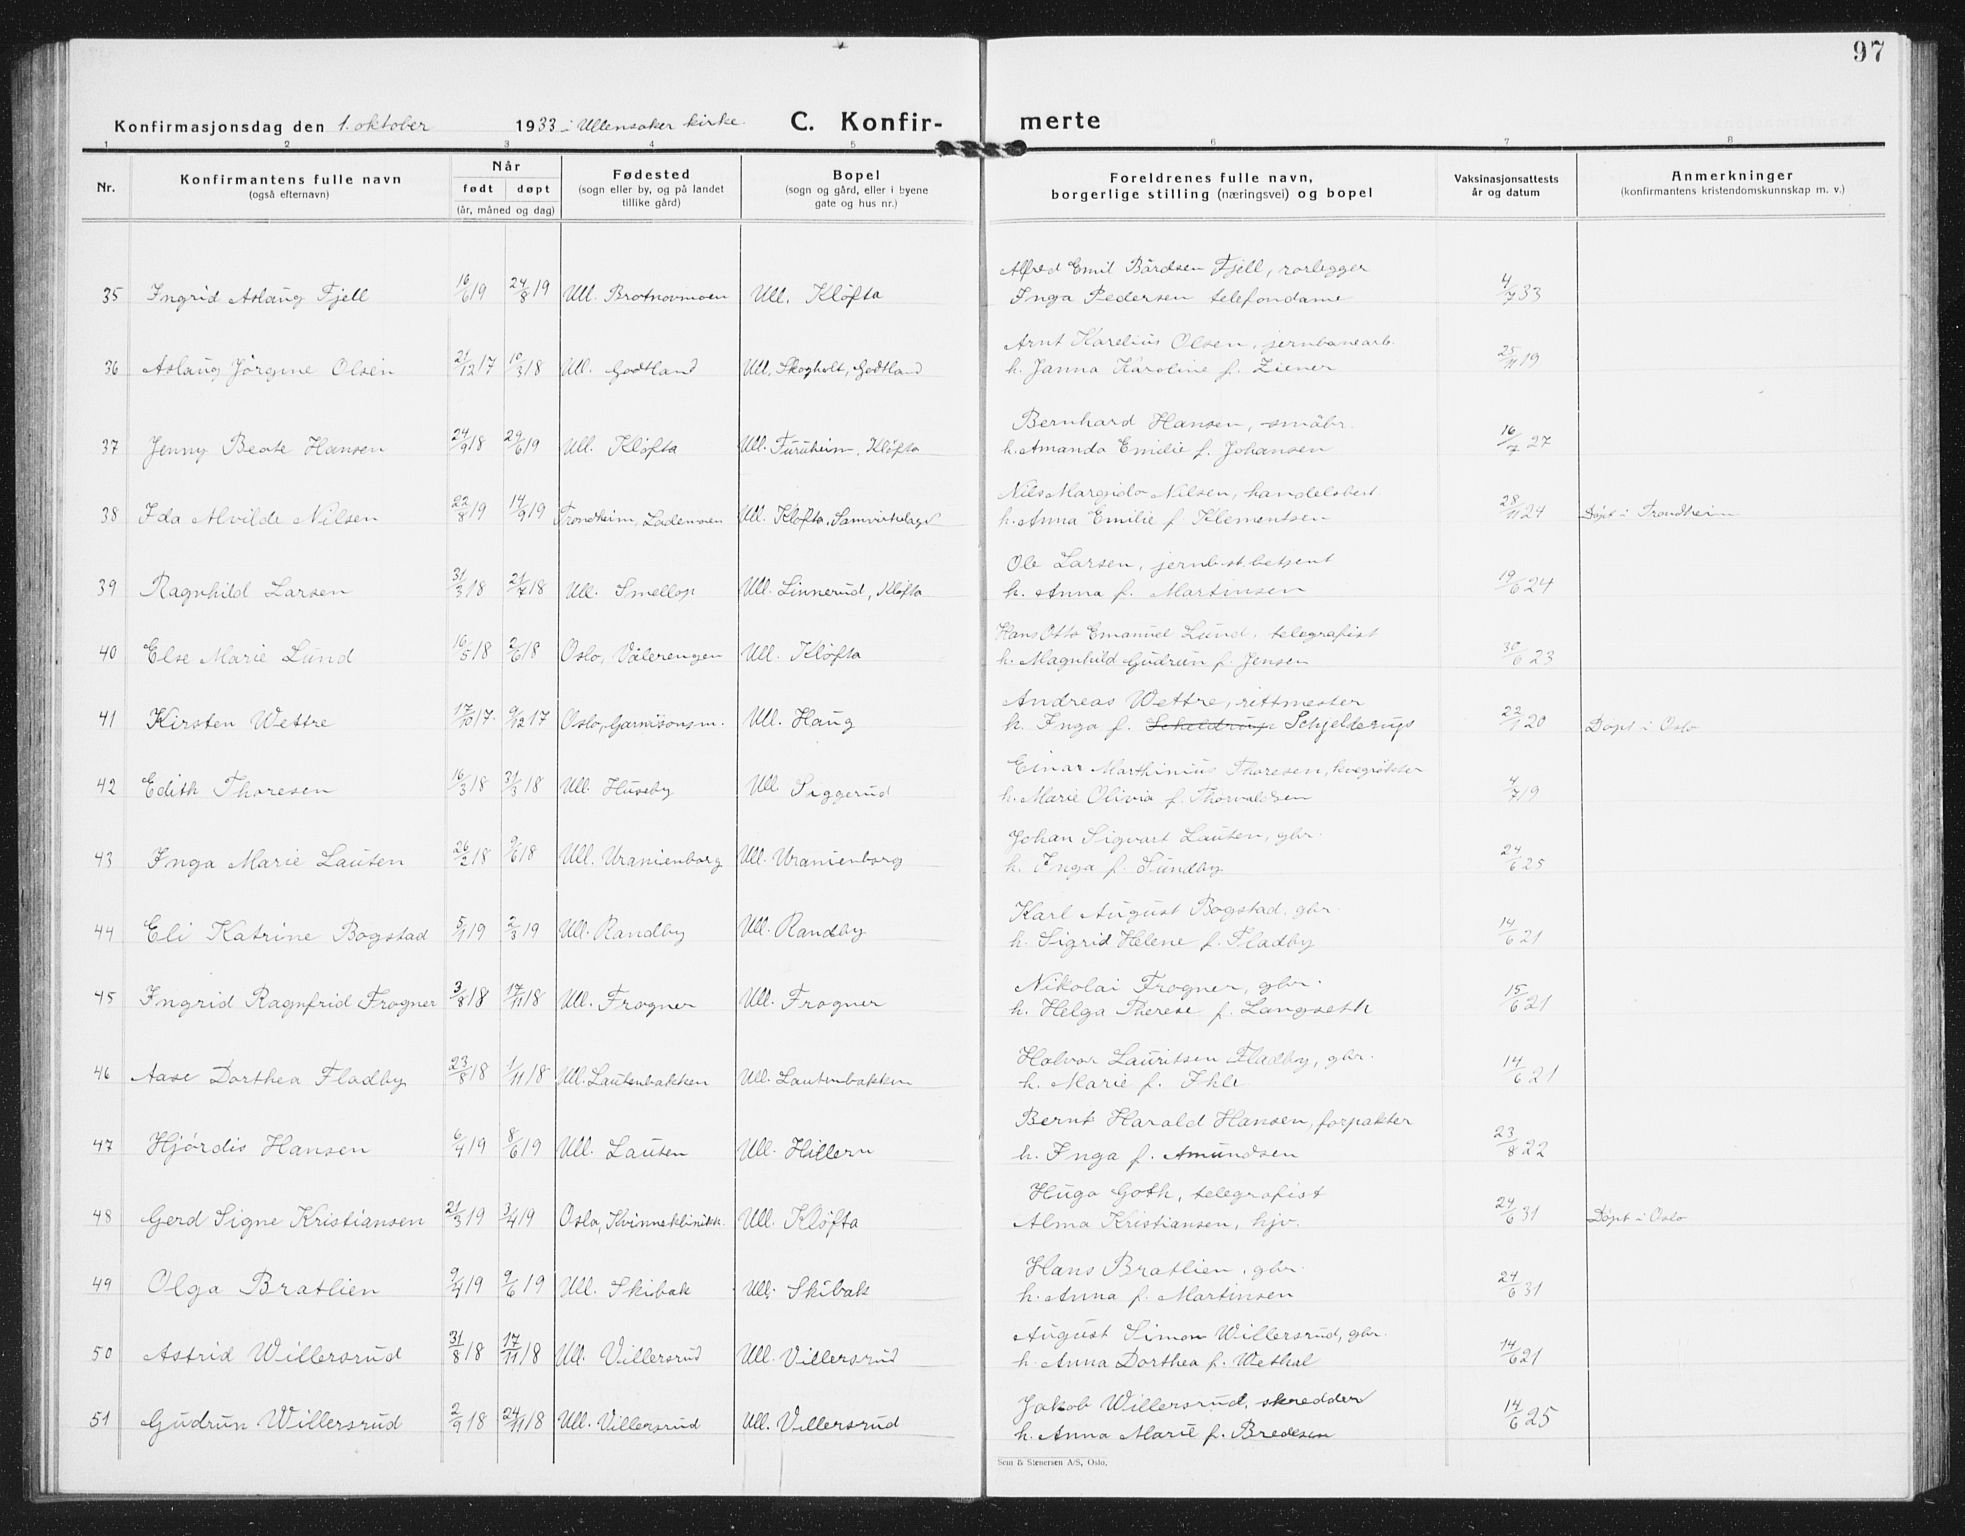 97
Konfirmasjonsdag den 1. oktober 1933 i Ullensaker kirke. C. Konfir- merte
1 2 3 4 5 6 7 8
Nr. Konfirmantens fulle navn (også efternavn) Når født døpt (år, måned og dag) Fødested (sogn eller by, og på landet tillike gård) Bopel (sogn og gård, eller i byene gate og hus nr.) Foreldrenes fulle navn, borgerlige stilling (næringsvei) og bopel Vaksinasjonsattests år og datum Anmerkninger (konfirmantens kristendomskunnskap m. v.)
Alfred Emil Bårdsen Fjell, rørlegger
35 Ingrid Aslaug Fjell 16/6 19 24/8 19 Ull. Brotnovmoen Ull. Kløfta Inga Pedersen telefondame 4/7 33
Arnt Karelius Olsen, jernbanearb.
36 Aslaug Jørgine Olsen 21/12 17 10/3 18 Ull. Godtland Ull. Skogholt, Godtland h. Janna Karoline f. Ziener 25/11 19
Bernhard Hansen, småbr.
37 Jenny Beate Hansen 24/9 18 29/6 19 Ull. Kløfta Ull. Furuheim, Kløfta h. Amanda Emilie f. Johansen 16/7 27
Nils Margido Nilsen, handelsbest.
38 Ida Alvilde Nilsen 22/8 19 14/9 19 Trondheim, Lademoen Ull. Kløfta, Samvirkelaget h. Anna Emilie f. Klementsen 28/11 24 Døpt i Trondheim
Ole Larsen, jernb.st.betjent
39 Ragnhild Larsen 31/3 18 21/7 18 Ull. Smellop Ull. Linnerud, Kløfta h. Anna f. Martinsen 19/6 24
Hans Otto Emanuel Lund, telegrafist
40 Else Marie Lund 16/5 18 2/6 18 Oslo, Vålerengen Ull. Kløfta h. Magnhild Gudrun f. Jensen 30/6 23
Andreas Wettre, rittmester
41 Kirsten Wettre 17/10 17. 9/12 17 Oslo, Garnisonsm. Ull. Haug h. Inga f. Scheldrup Schjelderup 22/1 20 Døpt i Oslo
Einar Marthinius Thoresen, kvegrøkter
42 Edith Thoresen 16/3 18 31/3 18 Ull. Huseby Ull. Siggerud h. Marie Olivia f. Thorvaldsen 4/7 19
Johan Sigvart Lauten, gbr.
43 Inga Marie Lauten 26/2 18 9/6 18 Ull. Uranienborg Ull. Uranienborg h. Inga f. Sundby 24/6 25
Karl August Bogstad, gbr.
44 Eli Katrine Bogstad 5/1 19 2/3 19 Ull. Randby Ull. Randby h. Sigrid Helene f. Fladby 14/6 21
Nikolai Frogner, gbr.
45 Ingrid Ragnfrid Frogner 3/8 18 17/11 18 Ull. Frogner Ull. Frogner h. Helga Therese f. Langseth 15/6 21
Halvor Lauritsen Fladby, gbr.
46 Aase Dorthea Fladby 23/8 18 1/11 18 Ull. Lautenbakken Ull. Lautenbakken h. Marie f. Ihle 14/6 21
Bernt Harald Hansen, forpakter
47 Hjørdis Hansen 6/4 19 8/6 19 Ull. Lauten Ull. Hillern h. Inga f. Amundsen 23/8 22
Hugo Goth, telegrafist
48 Gerd Signe Kristiansen 21/3 19 3/4 19 Oslo, Kvinneklinikk. Ull. Kløfta Alma Kristiansen, hjv. 24/6 31 Døpt i Oslo
Hans Bratlien, gbr.
49 Olga Bratlien 9/4 19 9/6 19 Ull. Skibak Ull. Skibak h. Anna f. Martinsen 24/6 31
August Simon Willersrud, gbr.
50 Astrid Willersrud 31/8 18 17/11 18 Ull. Villersrud Ull. Villersrud h. Anna Dorthea f. Wethal 14/6 21
Jakob Willersrud, skredder
51 Gudrun Willersrud 2/9 18 24/11 18 Ull. Villersrud Ull. Villersrud h. Anna Marie f. Bredesen 14/6 25
Sem & Stenersen A/S, Oslo.